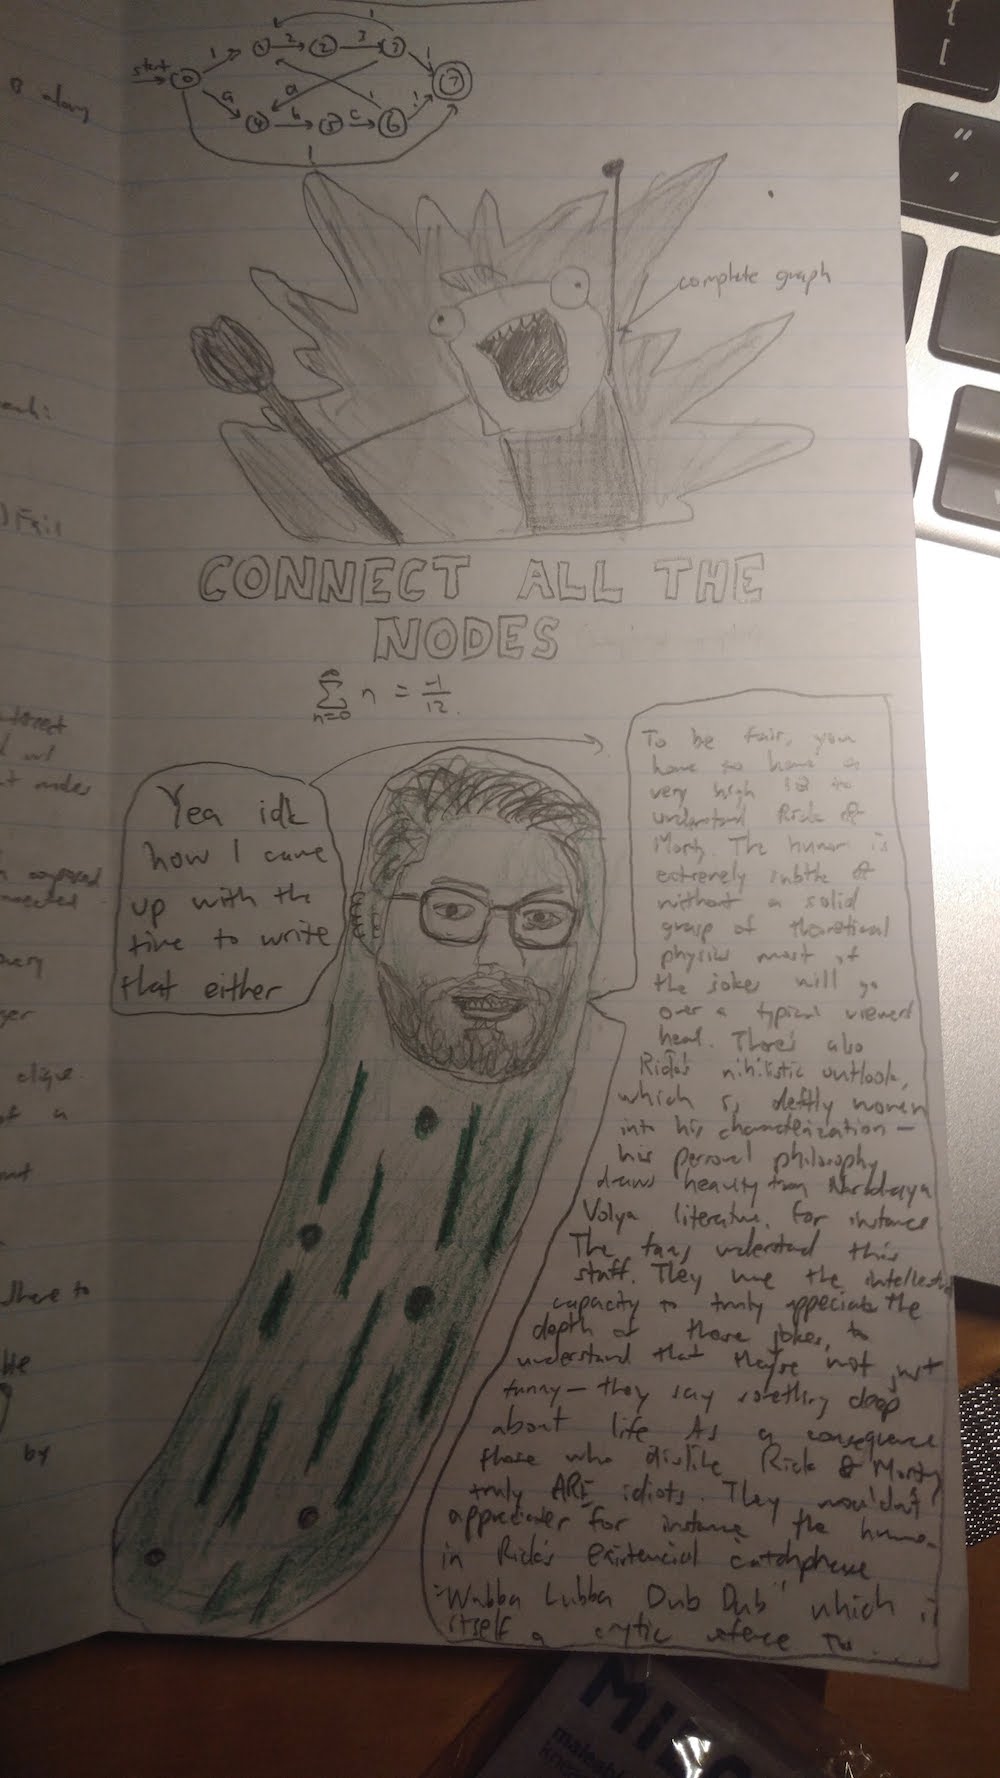 start
0 1 1 2 2 3 3 1 1 7
a 4 b 5 c 6 1 1
a
!
complete graph
CONNECT ALL THE
NODES
∞
∑ n = -1/12
n=0
Yea idk
how I came
up with the
time to write
that either
To be fair, you
have to have a
very high IQ to
understand Rick &
Morty. The humor is
extremely subtle &
without a solid
grasp of theoretical
physics most of
the jokes will go
over a typical viewers
head. There's also
Rick's nihilistic outlook,
which is deftly woven
into his characterization –
his personal philosophy
draws heavily from Narodnaya
Volya literature, for instance
The fans understand this
stuff. They have the intellectual
capacity to truly appeciate the
depth of those jokes, to
understand that they're not just
funny – they say something deep
about life As a consequence
those who dislike Rick & Morty
truly ARE idiots. They wouldn't
appreciate for instance the humor
in Rick's existencial catchphrase
"Wubba Lubba Dub Dub" which is
itself a cryptic refence to....
B along
each:
) Fail
nodes
composed
connected
every
clique
of a
out
there to
by
{
[
"
'
MIZ
maleabl